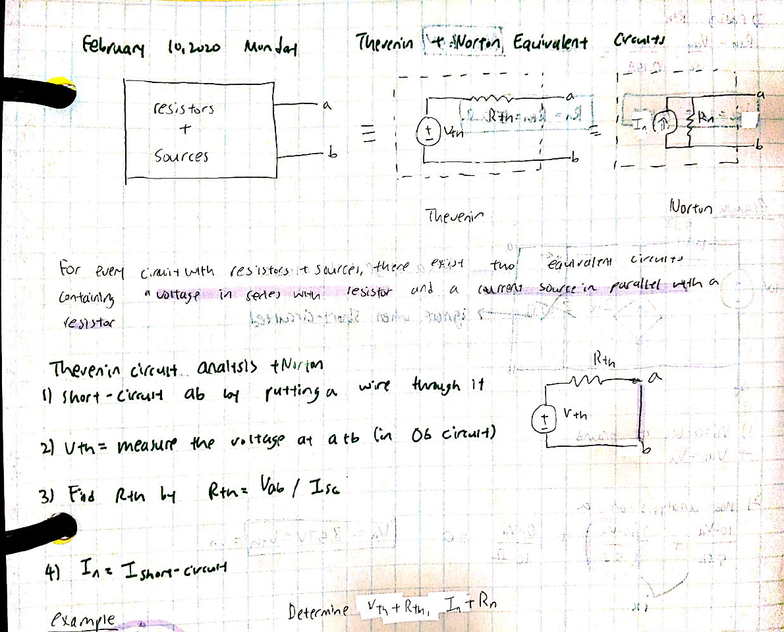 February 10, 2020 Monday Thevenin + Norton Equivalent Circuits
resistors
+
Sources
a
b
≡
+
-
Vth
Rth
a
b
≡
In
Rn
a
b
Thevenin
Norton
For every circuit with resistors + sources, there exist two equivalent circuits
containing a voltage in series with resistor and a current source in parallel with a
resistor
Thevenin circuit analysis + Norton
1) short-circuit ab by putting a wire through it
2) Vth = measure the voltage at a+b (in OG circuit)
3) Find Rth by Rth = Vab / Isc
4) In = I short-circuit
Rth
a
+
-
Vth
b
example Determine Vth + Rth, In + Rn